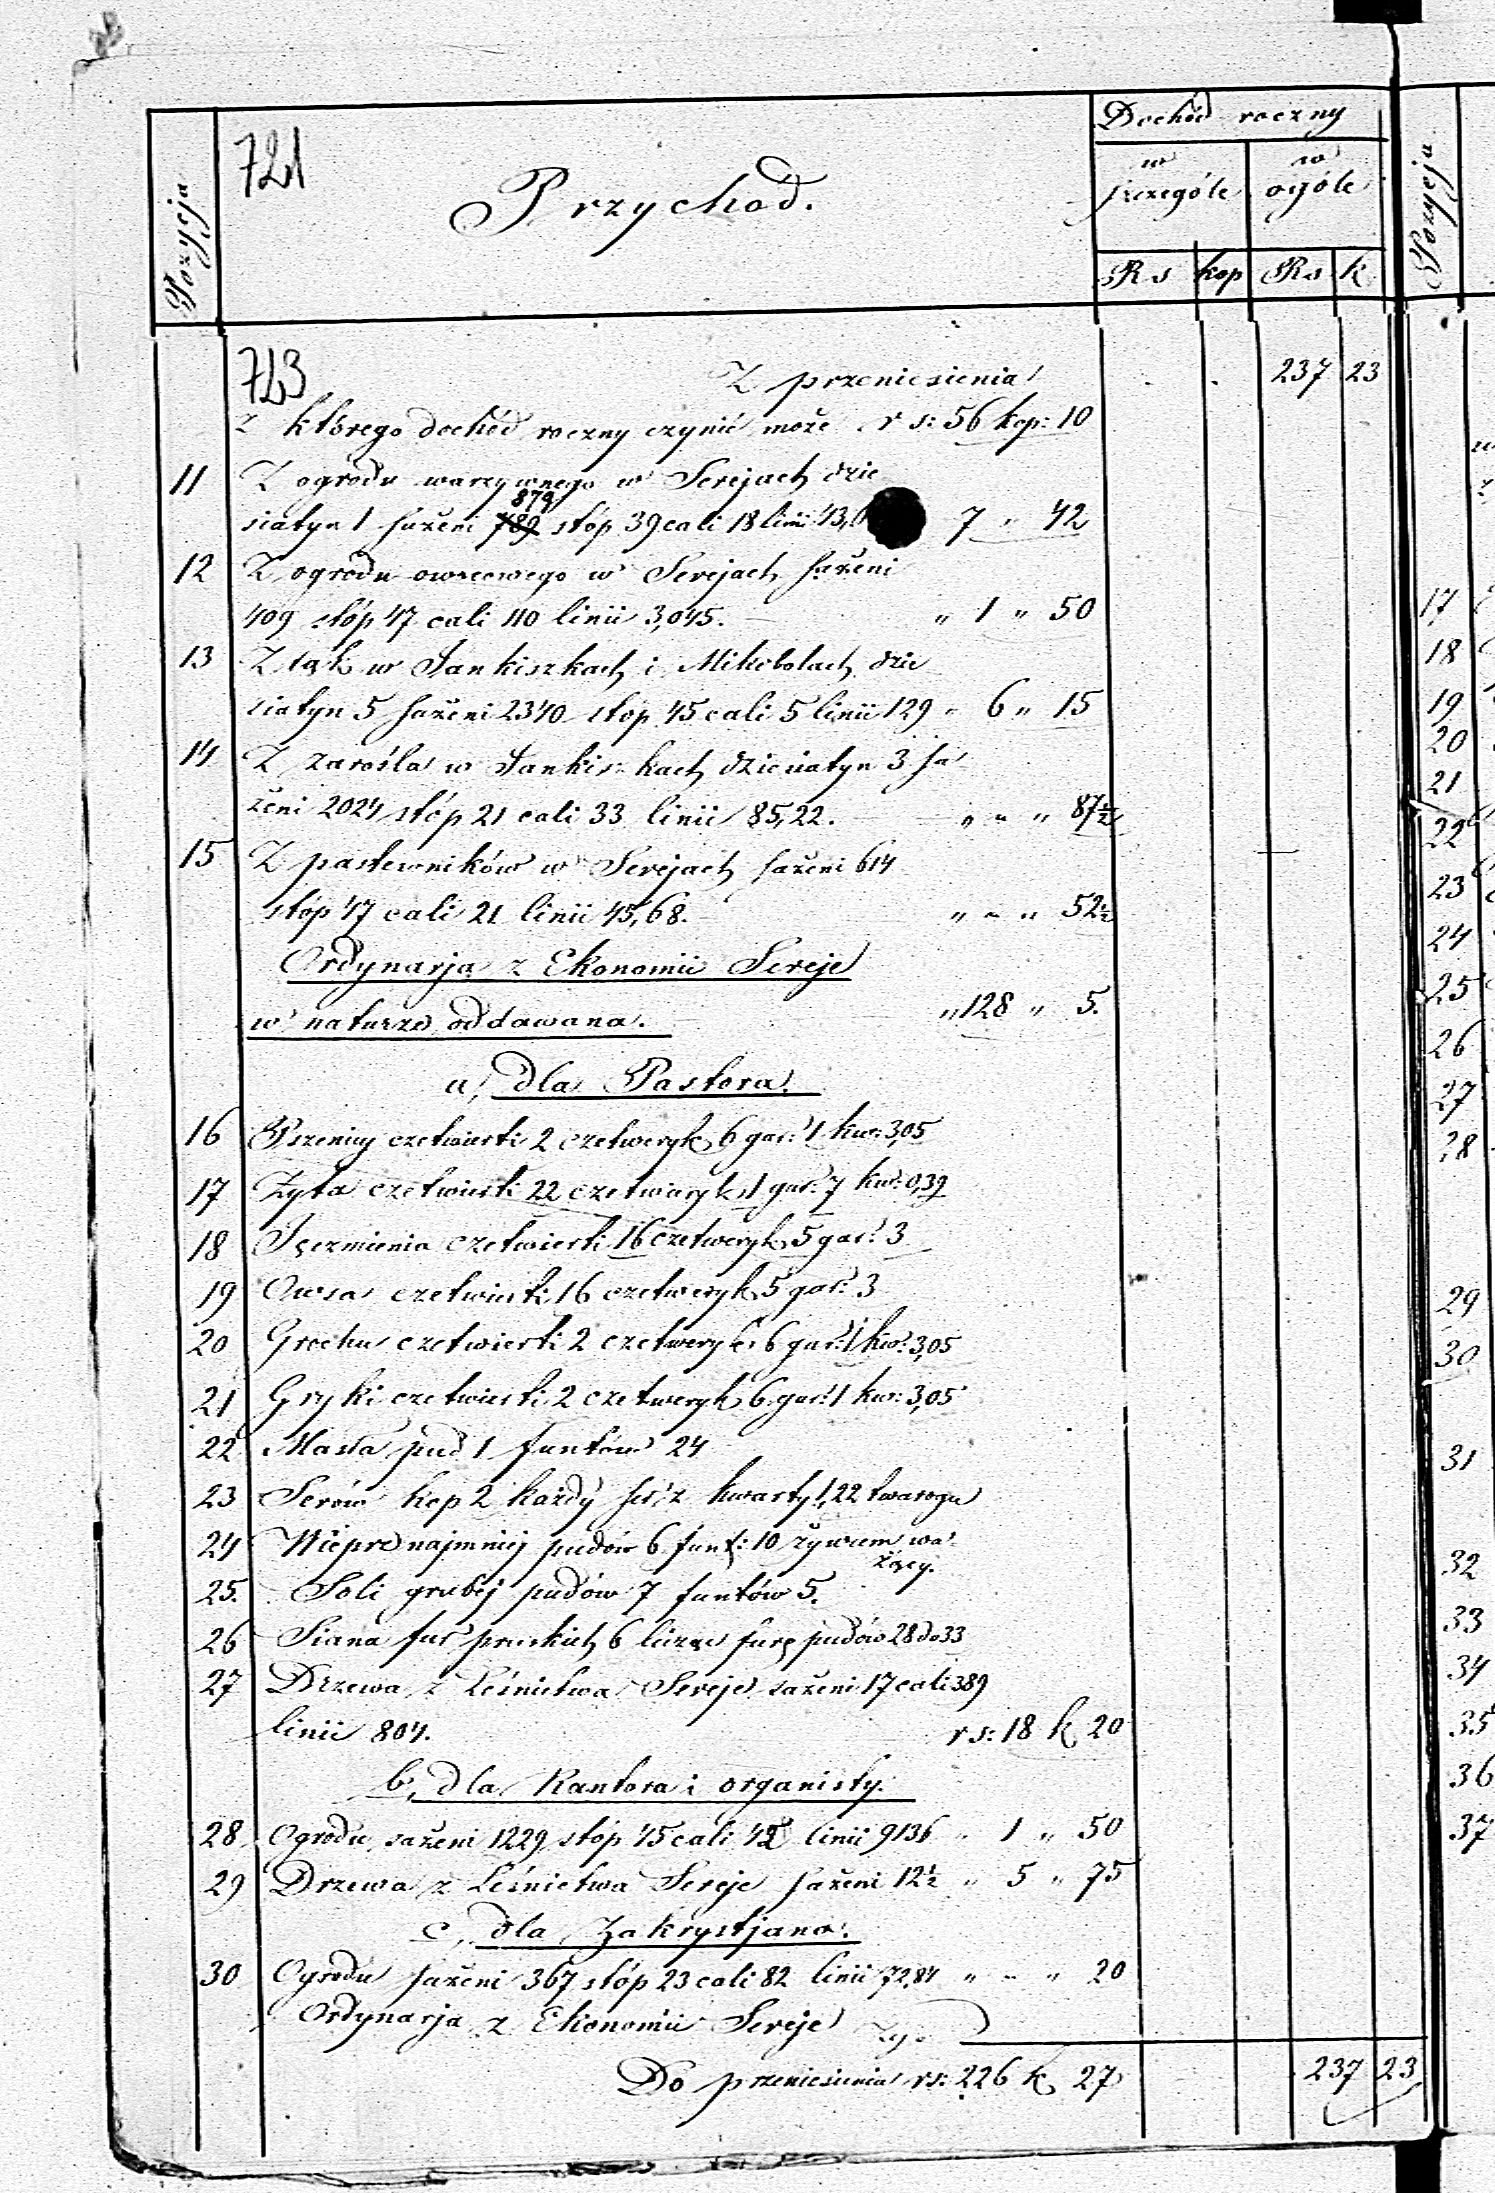 721
Pozycja
Przychod.
Dochód roczny
w szczególe
w ogóle
Rs kop Rs k
723
Z przeniesienia 237 23
z którego dochód roczny czynić może rs: 56 kop: 10
11 Z ogrodu warzywnego w Serejach dzie
879
siatyn 1 sażeni 789 stóp 39 cali 18 linii 43,6 7 " 42
12 Z ogrodu owocowego w Serejach sażeni
409 stóp 47 cali 110 linii 3,045. " 1 " 50
13 Z łąk w Jankiszkach i Mikobolach dzie
siatyn 5 sażeni 2340 stóp 45 cali 5 linii 129 " 6 " 15
14 Z zarośla w Jankiszkach dziesiatyn 3 sa
żeni 2024 stóp 21 cali 33 linii 85,22. " " " 87½
15 Z pastewników w Serejach sażeni 614
stóp 47 cali 21 linii 45,68. " " " 52½
Ordynarja z Ekonomii Sereje
w naturze oddawana. " 128 " 5.
a, dla Pastora.
16 Pszenicy czetwierti 2 czetweryk 6 gar: 1 kw: 3,05
17 Żyta czetwierti 22 czetweryk 1 gar: 7 kw: 0,39
18 Jęczmienia czetwierti 16 czetweryk 5 gar: 3
19 Owsa czetwierti 16 czetweryk 5 gar: 3
20 Grochu czetwierti 2 czetweryk 6 gar: 1 kw: 3,05
21 Gryki czetwierti 2 czetweryk 6 gar: 1 kw: 3,05
22 Masła pud 1 funtów 24
23 Serów kop 2 każdy ser z kwarty 1,22 twarogu
24 Wieprz najmniej pudów 6 funt: 10 żywcem wa
żący.
25. Soli grubej pudów 7 funtów 5.
26 Siana fur pruskich 6 licząc furę pudów 28 do 33
27 Drzewa z Leśnictwa Sereje sażeni 17 cali 389
linii 804. rs: 18 k 20
b, dla Kantora i organisty.
28 Ogrodu sażeni 1229 stóp 45 cali 42 linii 9136 " 1 " 50
29 Drzewa z Leśnictwa Sereje sażeni 12½ " 5 " 75
c, dla Zakrystjana.
30 Ogrodu sażeni 367 stóp 23 cali 82 linii 72,84 " " " 20
Ordynarja z Ekonomii Sereje
Do przeniesienia rs: 226 k 27 237 23
Pozycja
17
18
19
20
21
22
23
24
25
26
27
28
29
30
31
32
33
34
35
36
37